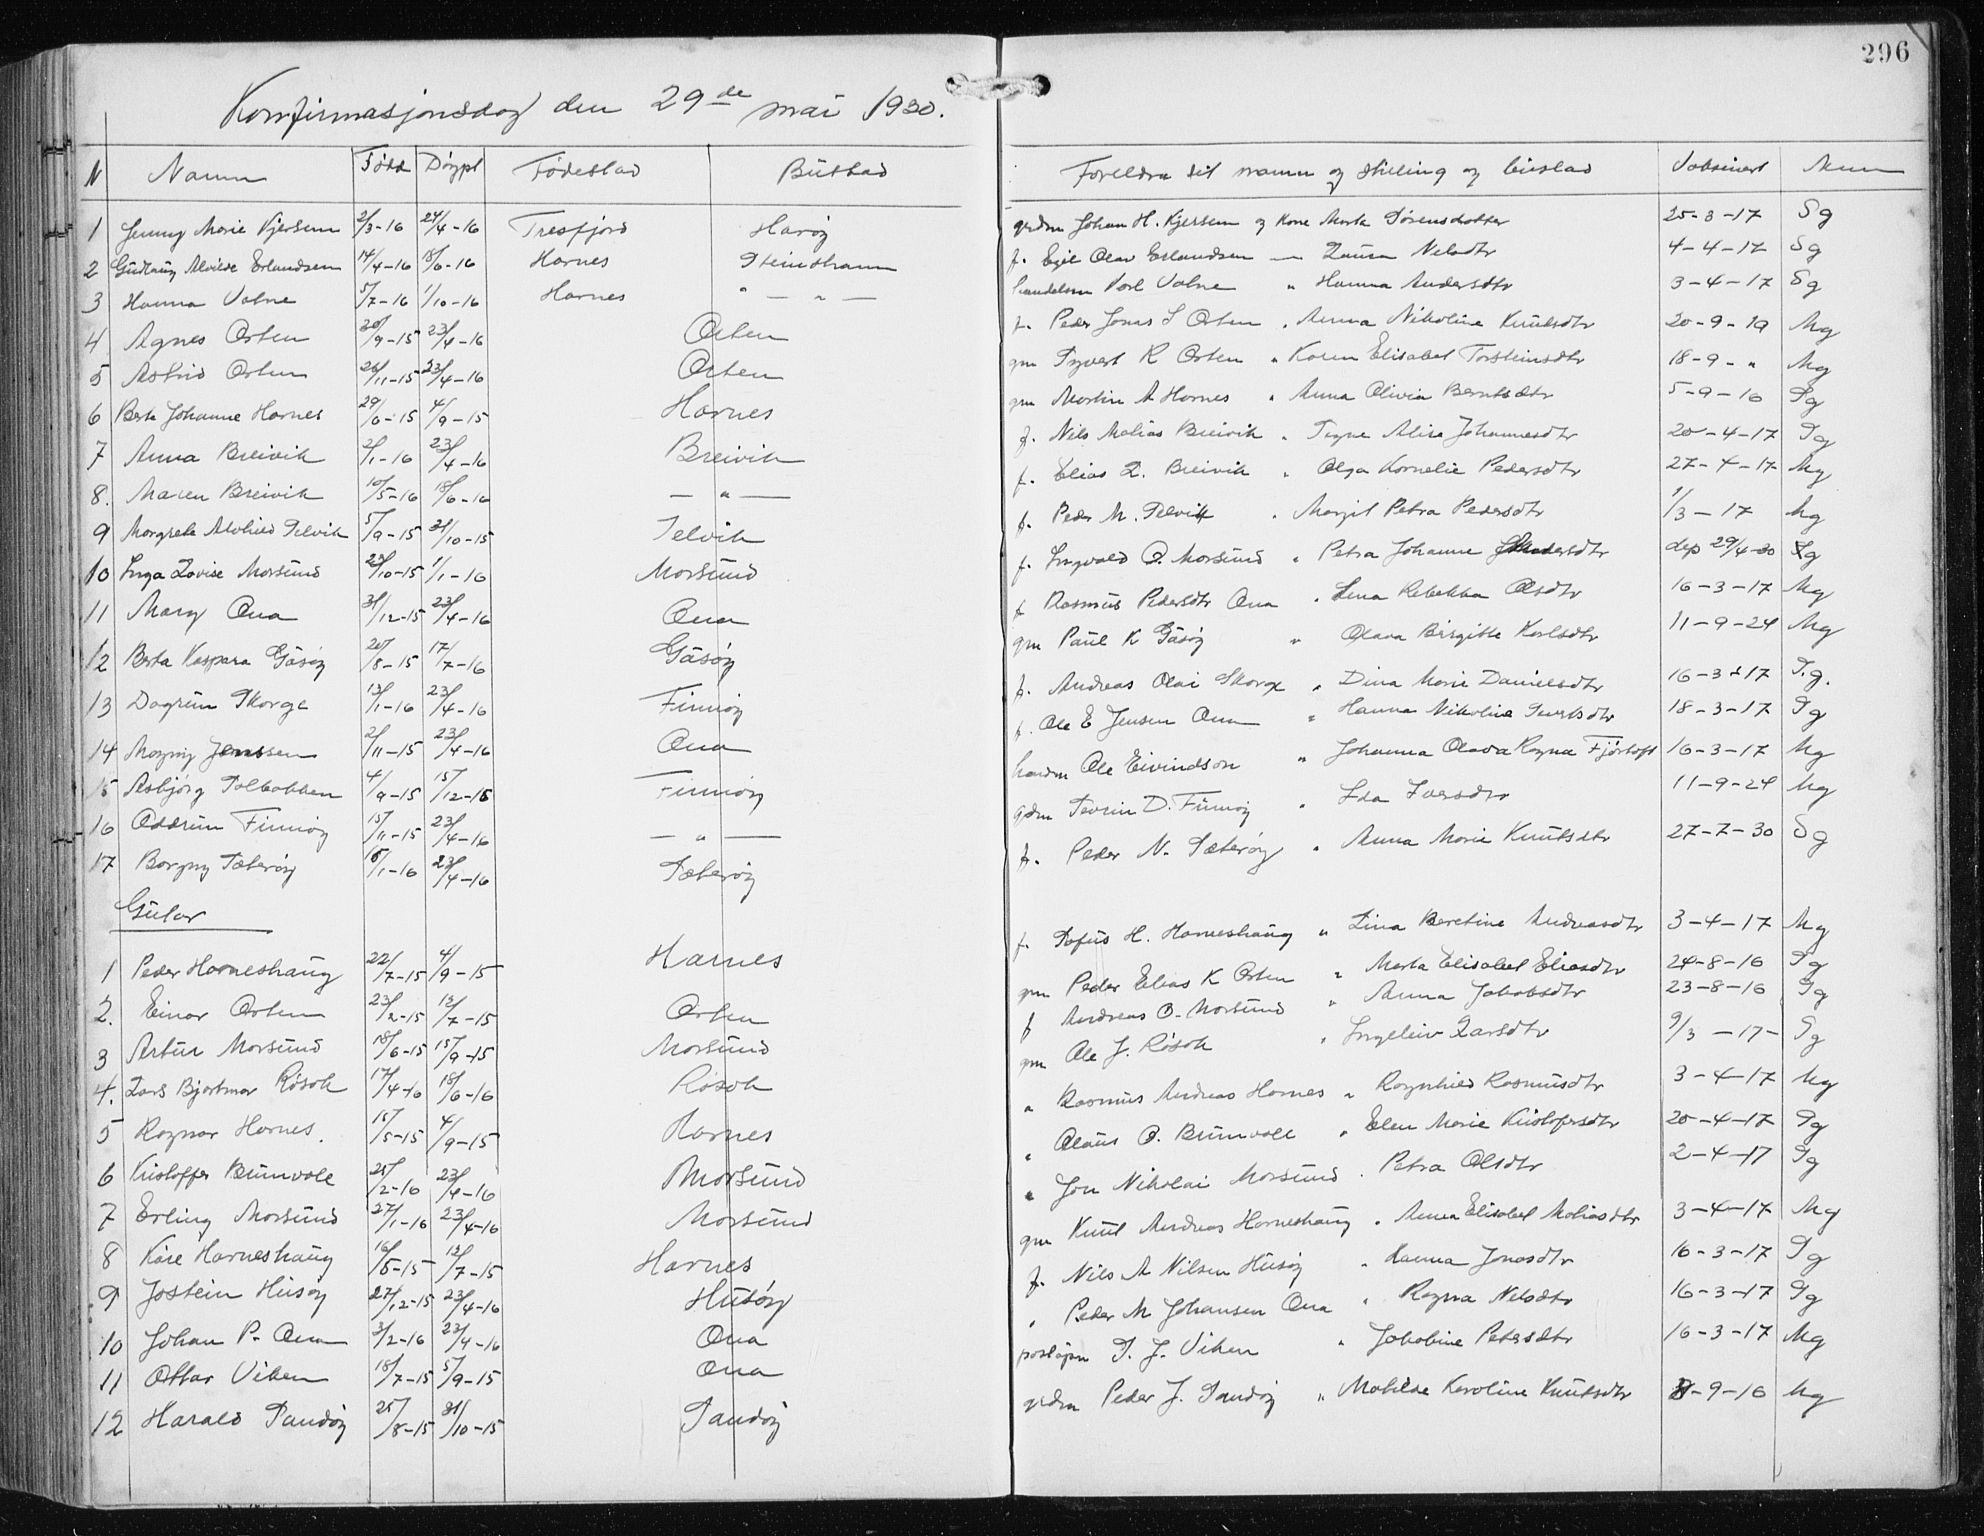 296
Konfirmasjonsdag den 29de mai 1930.
N Namn Född Döypt Födestad Bustad Foreldra sit namn og stilling og bustad Vaksinert
1 Jenny Marie Kjersem 2/3-16 24/4-16 Tresfjord Haröy grdm Johan H. Kjersem og Kone Marta Sörensdatter 25-3-17 Sg
2 Gudlaug Alvilde Erlandsen 14/4-16 18/6-16 Harnes Steinshamn f. Egil Olav Erlandsen — Laura Nilsdtr 4-4-17 Sg
3 Hanna Valne 5/7-16 1/10-16 Harnes " — " — handelsm Karl Valne " Hanna Andersdtr 3-4-17 Sg
4 Agnes Orten 20/9-15 23/4-16 Orten f. Peder Jonas S Orten " Anna Nikoline Knutsdtr 20-9-19 Mg
5 Astrid Orten 26/11-15 23/4-16 Orten gm Syvert K Orten " Karen Elisabet Torsteinsdtr 18-9-" Mg
6 Berta Johanne Harnes 29/6-15 4/9-15 Harnes gm Martin A Harnes " Anna Olivia Berntsdtr 5-9-16 Sg
7 Anna Breivik 2/1-16 23/4-16 Breivik f. Nils Matias Breivik " Signe Alisa Johannesdtr 20-4-17 Sg
8. Maren Breivik 10/5-16 18/6-16 — " — f. Elias L. Breivik " Olga Kornelie Pedersdtr 27-4-17 Mg
9 Margreta Alvhild Selvik 5/9-15 31/10-15 Selvik f. Peder M. Selvik " Margit Petra Pedersdtr 1/3-17 Mg
10 Inga Lovise Morsund 23/10-15 1/1-16 Morsund f. Ingvald O. Morsund " Petra Johanne dep 29/4-30 Sg
11 Mary Ona 31/12-15 23/4-16 Ona f Rasmus Pedersdtr Ona " Lena Rebekka Olsdtr 16-3-17 Mg
12 Berta Kaspara Gåsöy 20/8-15 17/7-16 Gåsöy gm Paul K Gåsöy " Olava Birgitte Karlsdtr 11-9-24 Mg
13 Dagrun Skorge 13/1-16 23/4-16 Finnöy f. Andreas Olai Skorge " Dina Marie Danielsdtr 16-3-17 S.g.
14 Magny Jenssen 2/11-15 23/4-16 Ona f. Ole E Jensen Ona " Hanna Nikolina Sivertsdtr 18-3-17 Sg
15 Asbjörg Solbakken 4/9-15 15/12-15 Finnöy handm Ole Eivindson " Johanna Olava Ragna Fjörtoft 16-3-17 Mg
16 Oddrun Finnöy 15/11-15 23/4-16 — " — grdm Severin D. Finnöy " Ida Iversdtr 11-9-24 Mg
17 Borgny Sæteröy 8/1-16 23/4-16 Sæteröy f. Peder N. Sæteröy " Anna Marie Knutsdtr 27-7-30 Sg
Gutar
1 Peder Harneshaug 22/7-15 4/9-15 Harnes f. Sofus H. Harneshaug " Lina Beretine Andreasdtr 3-4-17 Mg
2. Einar Orten 23/2-15 13/7-15 Orten gm Peder Elias K Orten " Marta Elisabet Eliasdtr 24-8-16 Sg
3 Artur Morsund 18/6-15 15/9-15 Morsund f Andreas O. Morsund " Anna Jakobsdtr 23-8-16 Sg
4. Lars Bjartmar Røsok 17/4-16 18/6-16 Røsok gm Ole J. Røsok " Ingeleiv Larsdtr 9/3-17- Sg
5 Ragnar Harnes. 15/5-15 4/9-15 Harnes " Rasmus Andreas Harnes " Ragnhild Rasmusdtr 3-4-17 Mg
6 Kristoffer Brunvoll 25/2-16 23/4-16 Morsund " Olaus O. Brunvoll " Elen Marie Kristofersdtr 20-4-17 Sg
7 Erling Morsund 27/1-16 23/4-16 Morsund " Jon Nikolai Morsund " Petra Olsdtr 2-4-17 Sg
8 Kåre Harneshaug 16/5-15 13/7-15 Harnes gm Knut Andreas Harneshaug " Anna Elisabet Matiasdtr 3-4-17 Mg
9 Jostein Husöy 27/12-15 23/4-16 Husöy f. Nils A Nilsen Husöy " Hanna Jonasdtr 16-3-17 Sg
10 Johan P. Ona 3/2-16 23/4-16 Ona " Peder M Johansen Ona " Ragna Nilsdtr 16-3-17 Sg
11 Ottar Viken 18/7-15 5/9-15 Ona postopn S. J. Viken " Jakobine Petersdtr 16-3-17 Mg
12 Harald Sandöy 25/8-15 31/10-15 Sandöy grdm Peder J. Sandöy " Matilde Karoline Knutsdtr 8-9-16 Mg